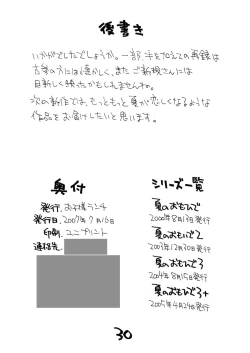 後書き
いかがでしたでしょうか。一部、手を加えての再録は
古参の方には懐かしく、またご新規さんには
目新しく映ったかもしれませんね。
次の新作では、もっともっと夏が恋しくなるような
作品をお届けしたいと思います。
奥付
発行 お子様ランチ
発行日 2007年7月16日
印刷 ユニプリント
連絡先
シリーズ一覧
夏のおもひで
2000年8月13日発行
夏のおもひで2
2003年12月30日発行
夏のおもひで3
2004年8月15日発行
夏のおもひで3+
2005年4月24日発行
30